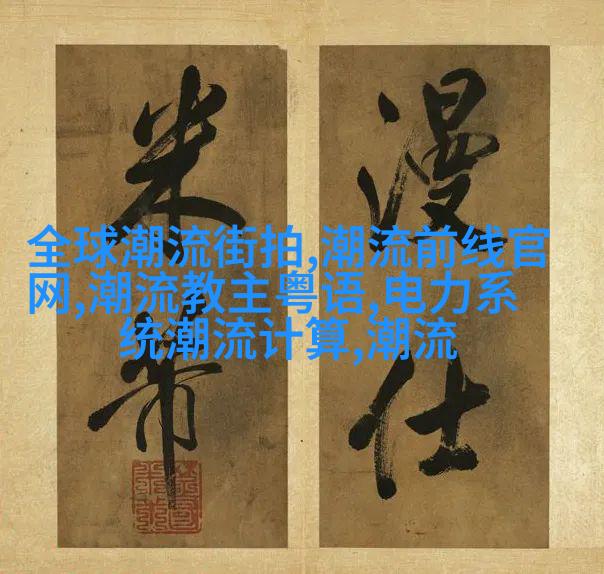 全球潮流街拍,潮流前线官
网,潮流教主粤语,电力系
统潮流计算,潮流
漫仕
米芾